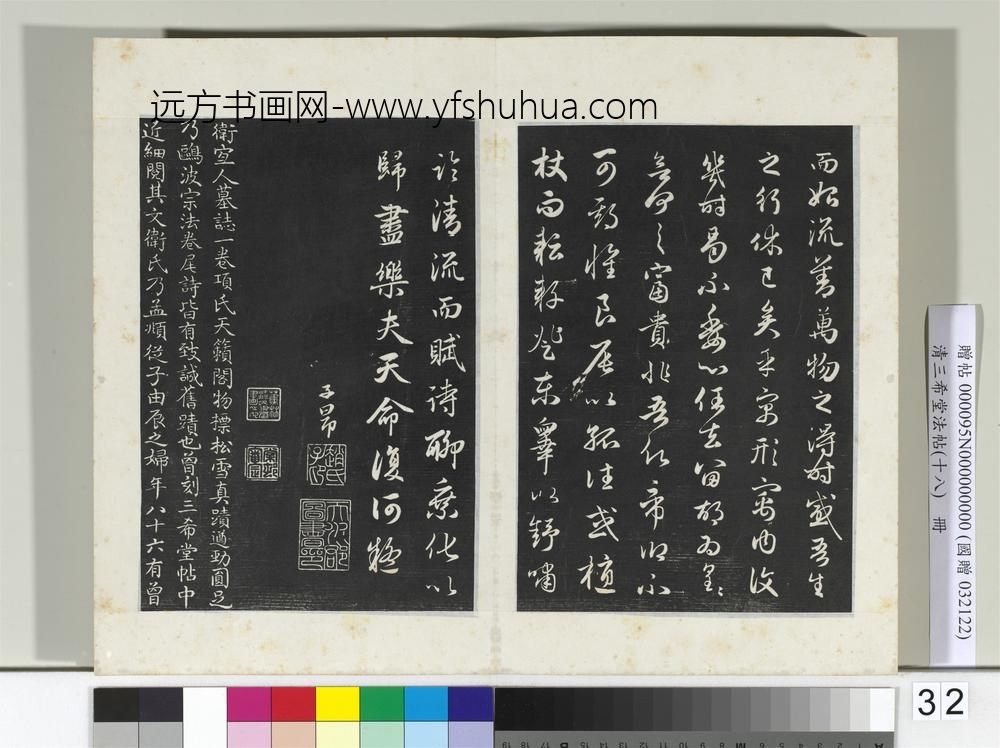 远方书画网-www.yfshuhua.com
而始流善萬物之得時感吾生
之行休已矣乎寓形寓内復
幾時曷不委心任去留胡为遑遑
之富貴非吾願帝鄉不
可期懷良辰以孤往或植
杖而耘耔登東皋以舒嘯
臨清流而賦詩聊乘化以
歸盡樂夫天命復何疑
子昂
趙氏子昂
衛宜人墓誌一卷項氏天籟閣物標松雪真蹟遒勁圓足
乃鷗波宗法卷尾詩皆有致誠舊蹟也曾刻三希堂帖中
近細閱其文衛氏乃孟順從子由辰之婦年八十六有曾
贈帖 000095N000000000 (國贈 032122)
清三希堂法帖(十八) 冊
32